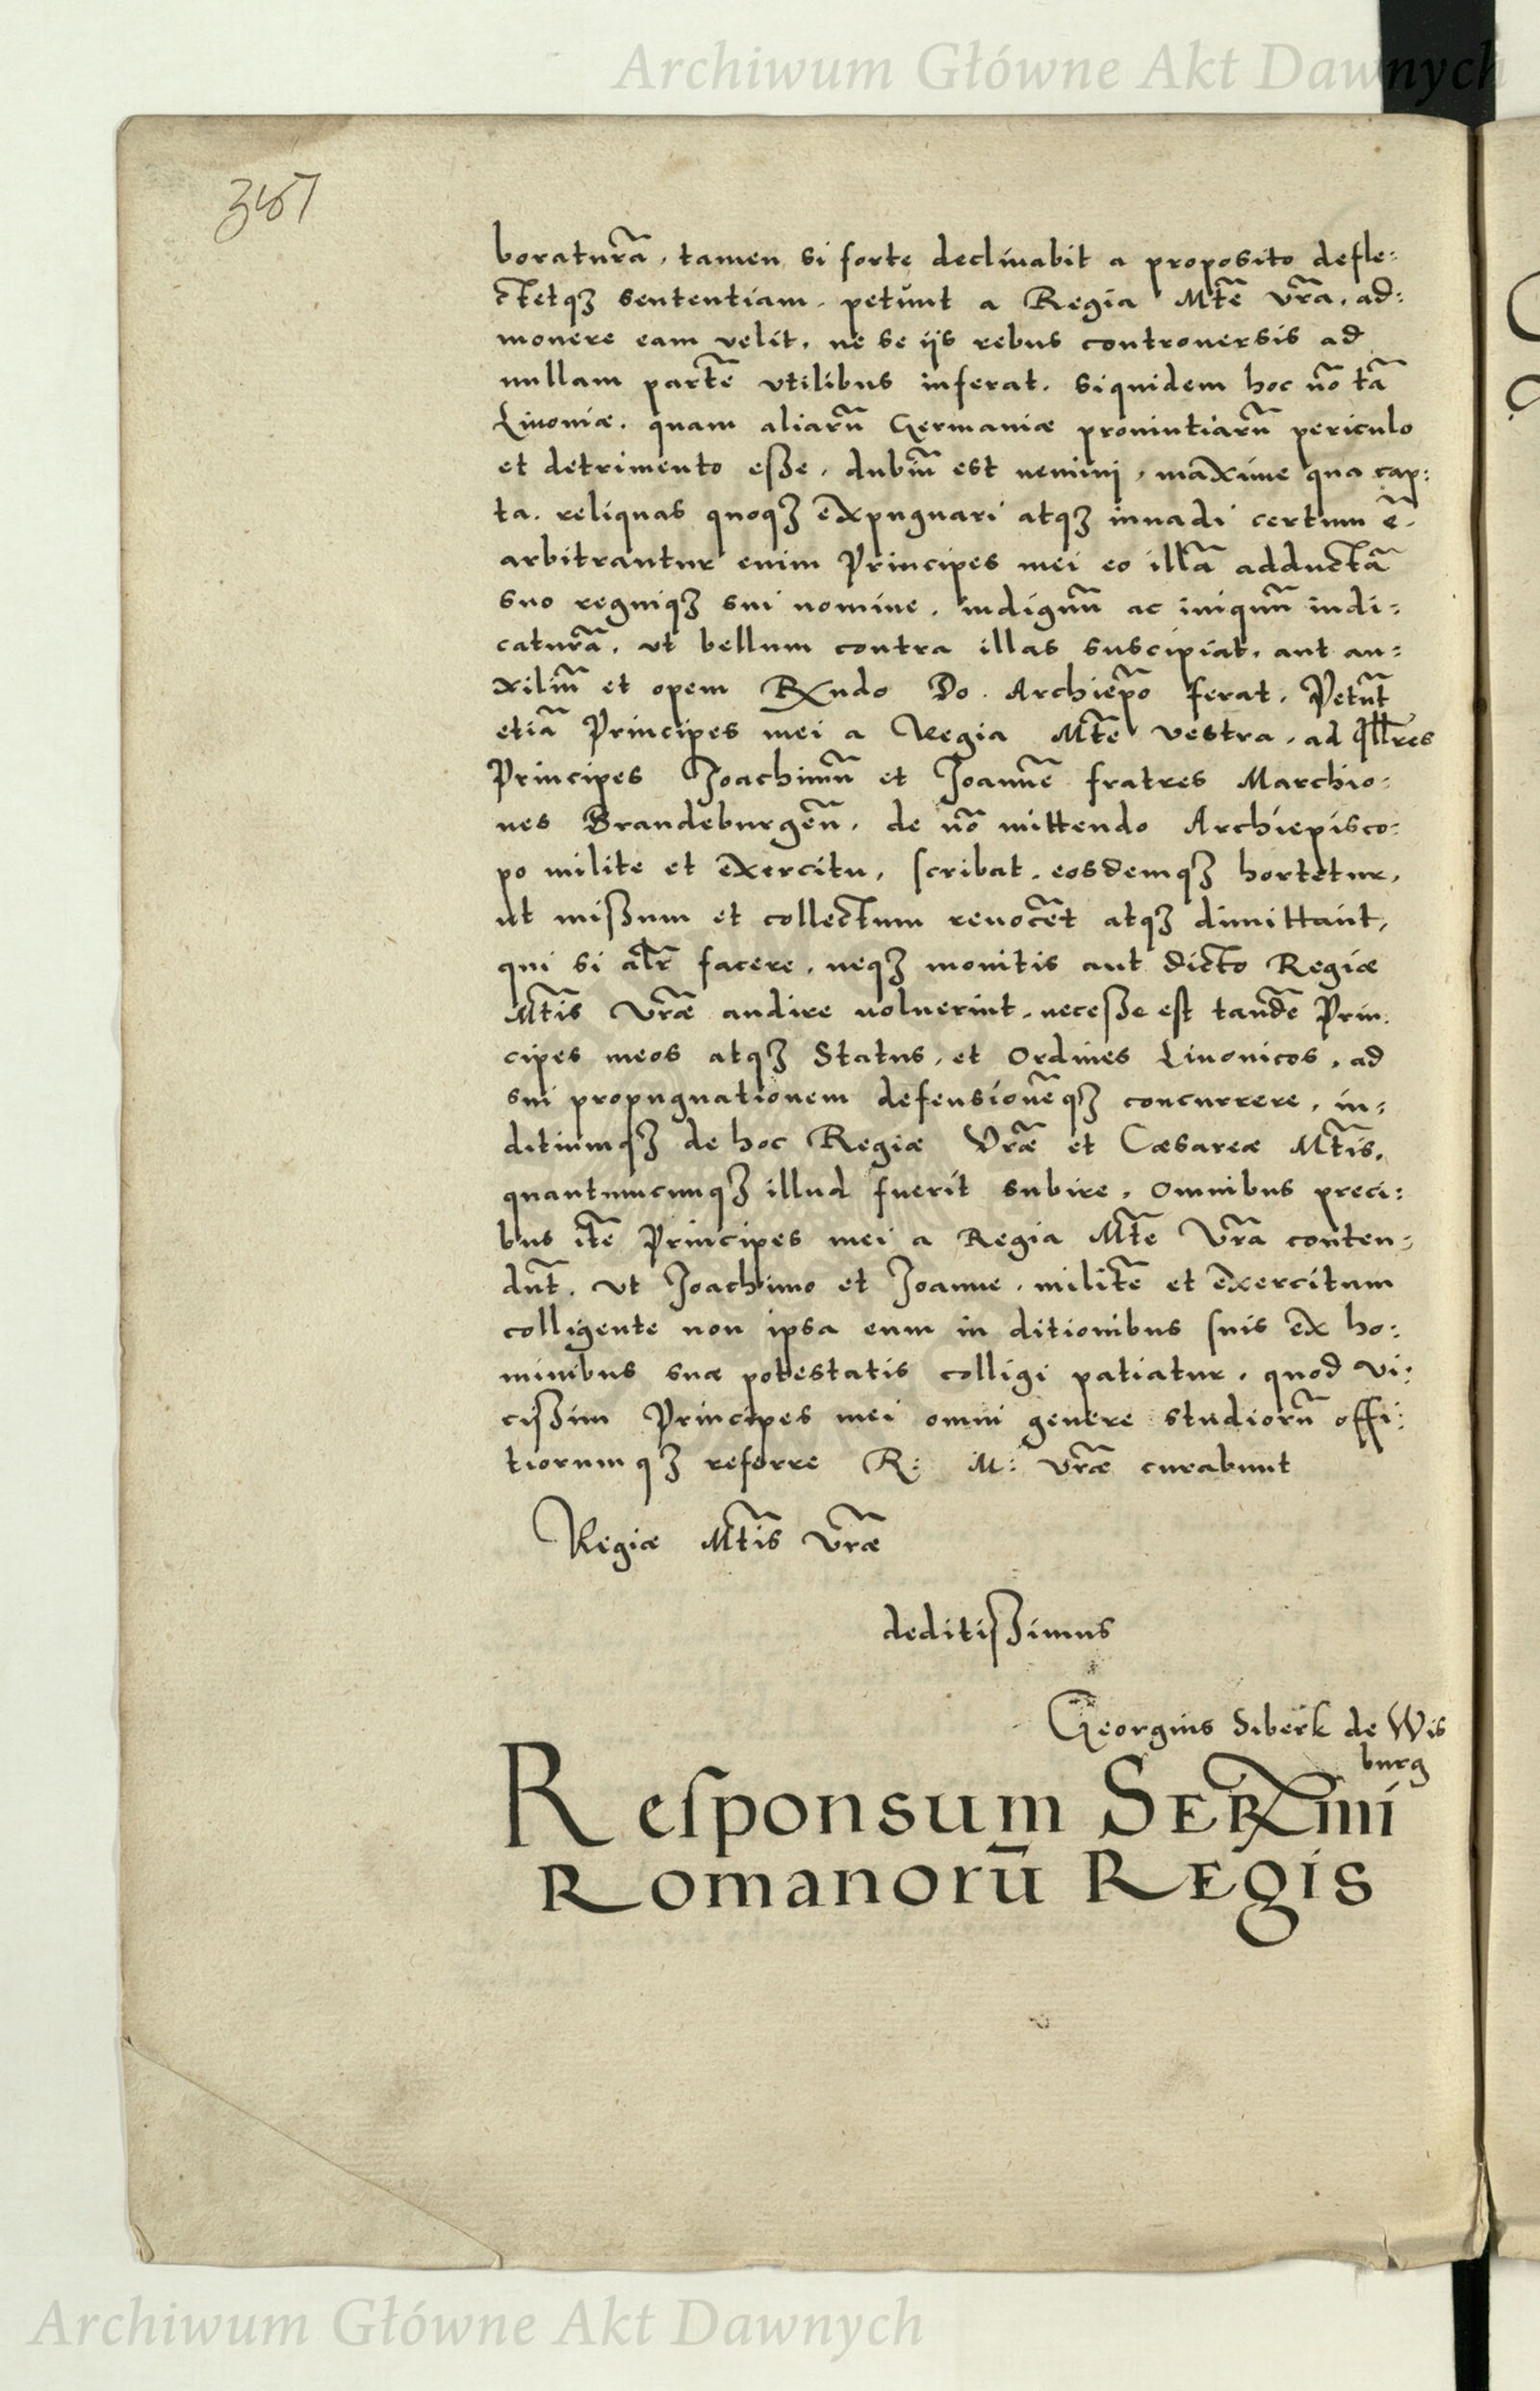 Archiwum Główne Akt Dawnych
boraturã, tamen si forte declinabit a proposito defle:
ctetqȝ sententiam, petũnt a Regia Mtẽ vrã, ad:
monere eam velit, ne se ijs rebus controuersis ad
nullam partẽ vtilibus inferat. siquidem hoc nõ tã
Liuoniæ, quam aliarũ Germaniæ prouintiarũ periculo
et detrimento eße, dubiũ est nemini, maxime qua cap:
ta, reliquas quoqȝ expugnari atqȝ inuadi certum ẽ.
arbitrantur enim Principes mei eo illã adductã
suo regniqȝ sui nomine, indignũ ac iniquũ iudi:
caturã, ut bellum contra illas suscipiat, aut au:
xiliũ et opem Rxndo Do. Archiepõ ferat, Petũt
etiã Principes mei a Regia Mtẽ vestra, ad Illres
Principes Joachimũ et Joannẽ fratres Marchio:
nes Brandeburgeñ, de nõ mittendo Archiepisco:
po milite et exercitu, scribat, eosdemqȝ hortetur,
ut mißum et collectum reuocẽt atqȝ dimittant,
qui si alr̃ facere, neqȝ monitis aut dicto Regiæ
Mtis̃ vræ̃ audire uoluerint, neceße est tandẽ Prin:
cipes meos atqȝ Status, et Ordines Liuonicos, ad
sui propugnationem defensionẽqȝ concurrere, iu:
ditiumqȝ de hoc Regiæ Vræ̃ et Cæsareæ Mtis̃,
quantumcunqȝ illud fuerit subire, Omnibus preci:
bus itẽ Principes mei a Regia Mtẽ Vrã conten:
dũt, ut Joachimo et Joanne, militẽ et exercitum
colligente non ipsa eum in ditionibus suis ex ho:
minibus suæ potestatis colligi patiatur, quod vi:
cißim Principes mei omni genere studiorũ offi:
tiorumqȝ referre R: M: vræ̃ curabunt
Regiæ Mtis̃ vræ̃
deditißimus
Georgius Siberk de Wis
burg
Responsum SERxmi
Romanorũ REgis
Archiwum Główne Akt Dawnych